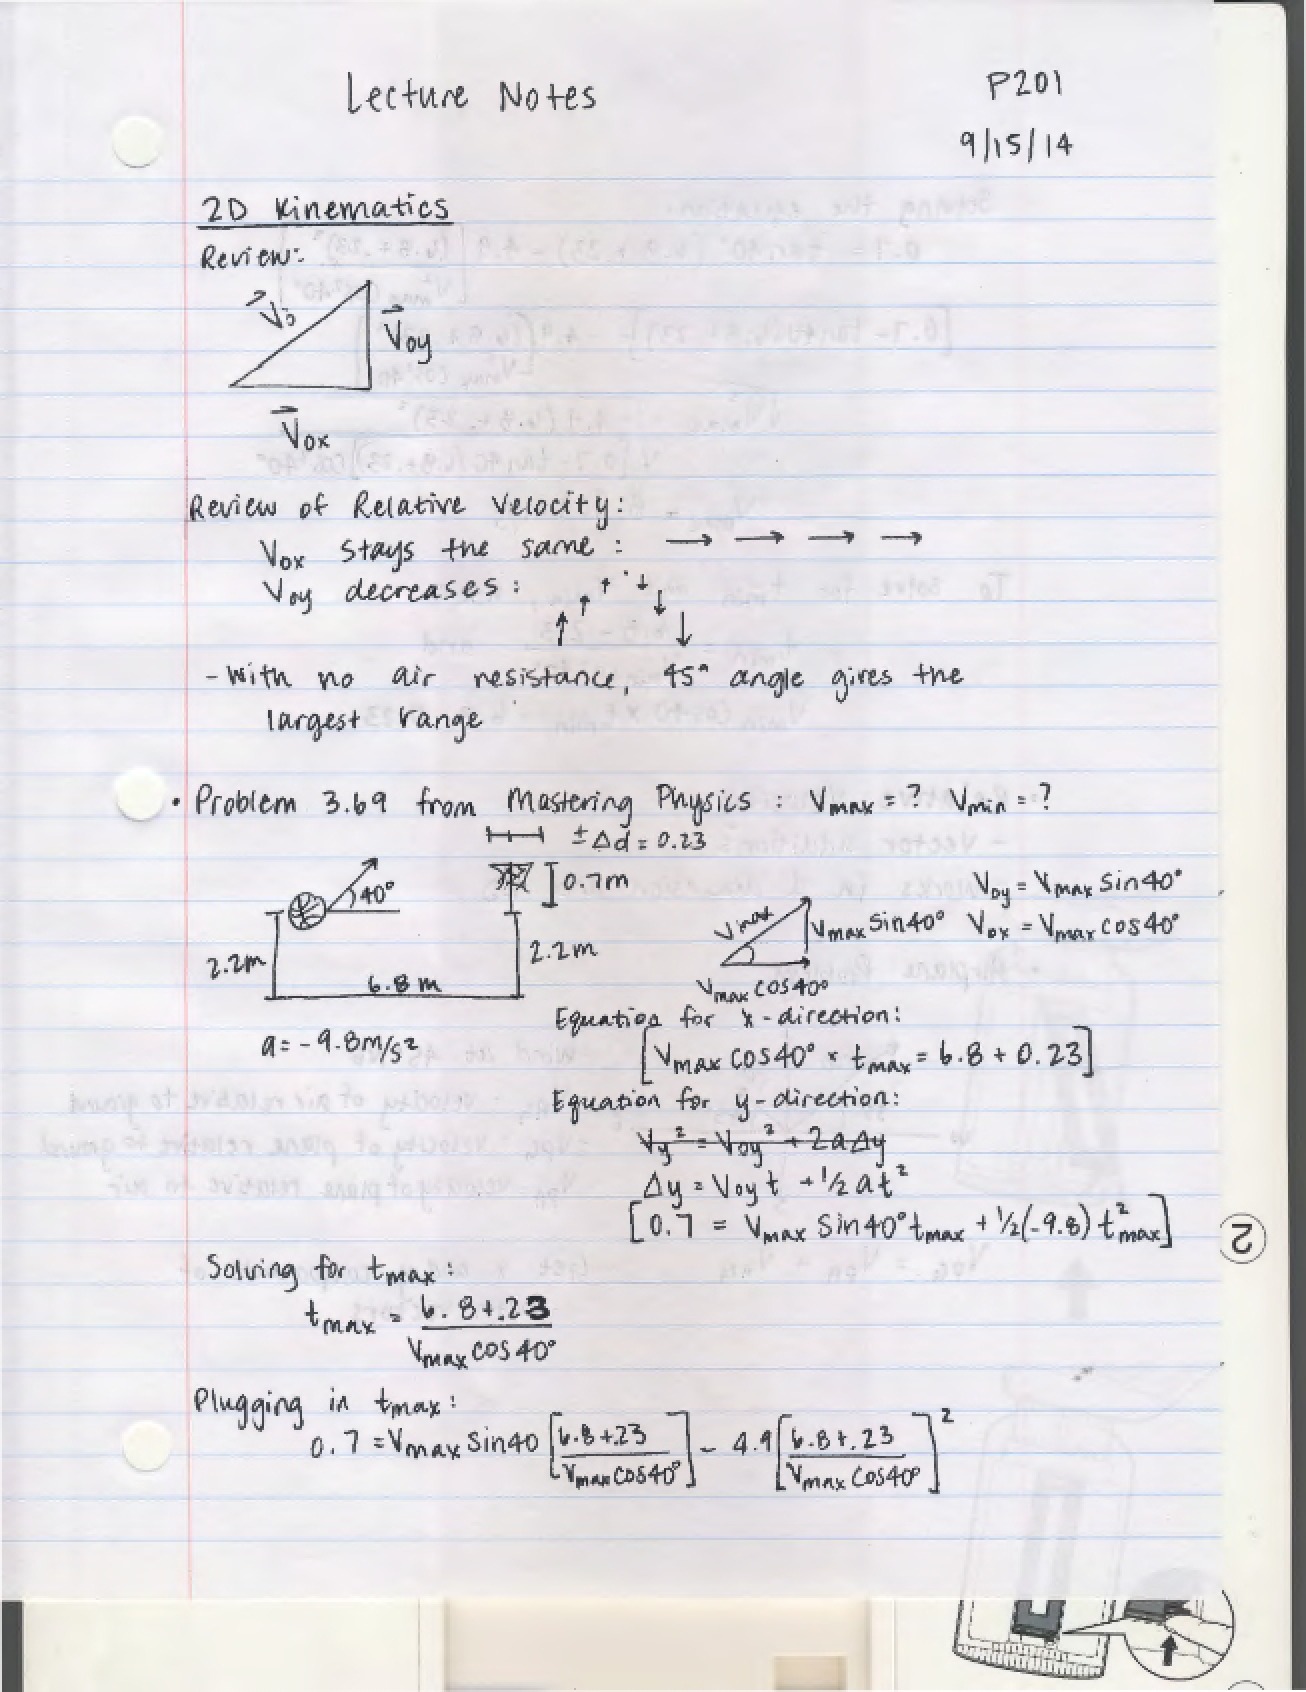 Lecture Notes
P201
9/15/14
2D Kinematics
Review:
V₀
V₀y
V₀x
Review of Relative Velocity:
V₀x stays the same : → → → →
V₀y decreases :
- With no air resistance, 45° angle gives the
largest range
• Problem 3.69 from Mastering Physics : Vmax = ? Vmin = ?
± Δd = 0.23
40°
0.7m
2.2m
6.8 m
2.2m
a = -9.8m/s²
Vmax
Vmax sin40°
Vmax cos40°
V₀y = Vmax sin40°
V₀x = Vmax cos40°
Equation for x-direction:
[Vmax cos40° × tmax = 6.8 + 0.23]
Equation for y-direction:
Vy² = V₀y² + 2aΔy
Δy = V₀y t + 1/2 at²
[0.7 = Vmax sin40° tmax + 1/2(-9.8) t²max]
Solving for tmax:
tmax = 6.8+.23 / Vmax cos40°
Plugging in tmax:
0.7 = Vmax sin40 [6.8+.23 / Vmax cos40°] - 4.9 [6.8+.23 / Vmax cos40°]²
2